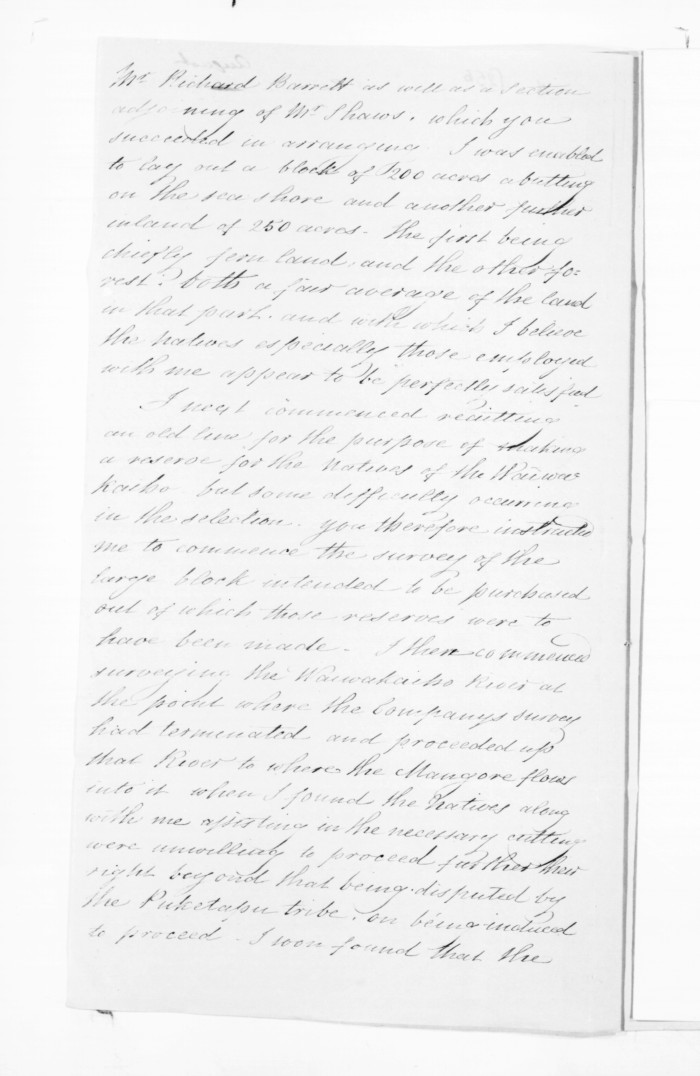 Mr Richard Barrett as well as a section
adjoining of Mr Shaws. which you
succeeded in arranging. I was enabled
to lay out a block of 1200 acres abutting
on the sea shore and another further
inland of 250 acres - the first being
chiefly fern land, and the other fo=
rest. both a fair average of the land
in that part. and with which I believe
the natives especially those employed
with me appear to be perfectly satisfied
I next commenced recutting
an old line for the purpose of making
a reserve for the natives of the Waiwa
kaiho but some difficulty occurring
in the selection. you therefore instructed
me to commence the survey of the
large block intended to be purchased
out of which those reserves were to
have been made - I then commenced
surveying the Waiwakaiho River at
the point where the Companys survey
had terminated and proceeded up
that River to where the Mangore flows
into it when I found the natives along
with me assisting in the necessary cutting
were unwilling to proceed further their
right beyond that being disputed by
the Puketapu tribe. on being induced
to proceed - I soon found that the